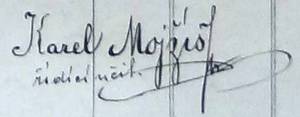 Karel Mojžíš
řídící učit.